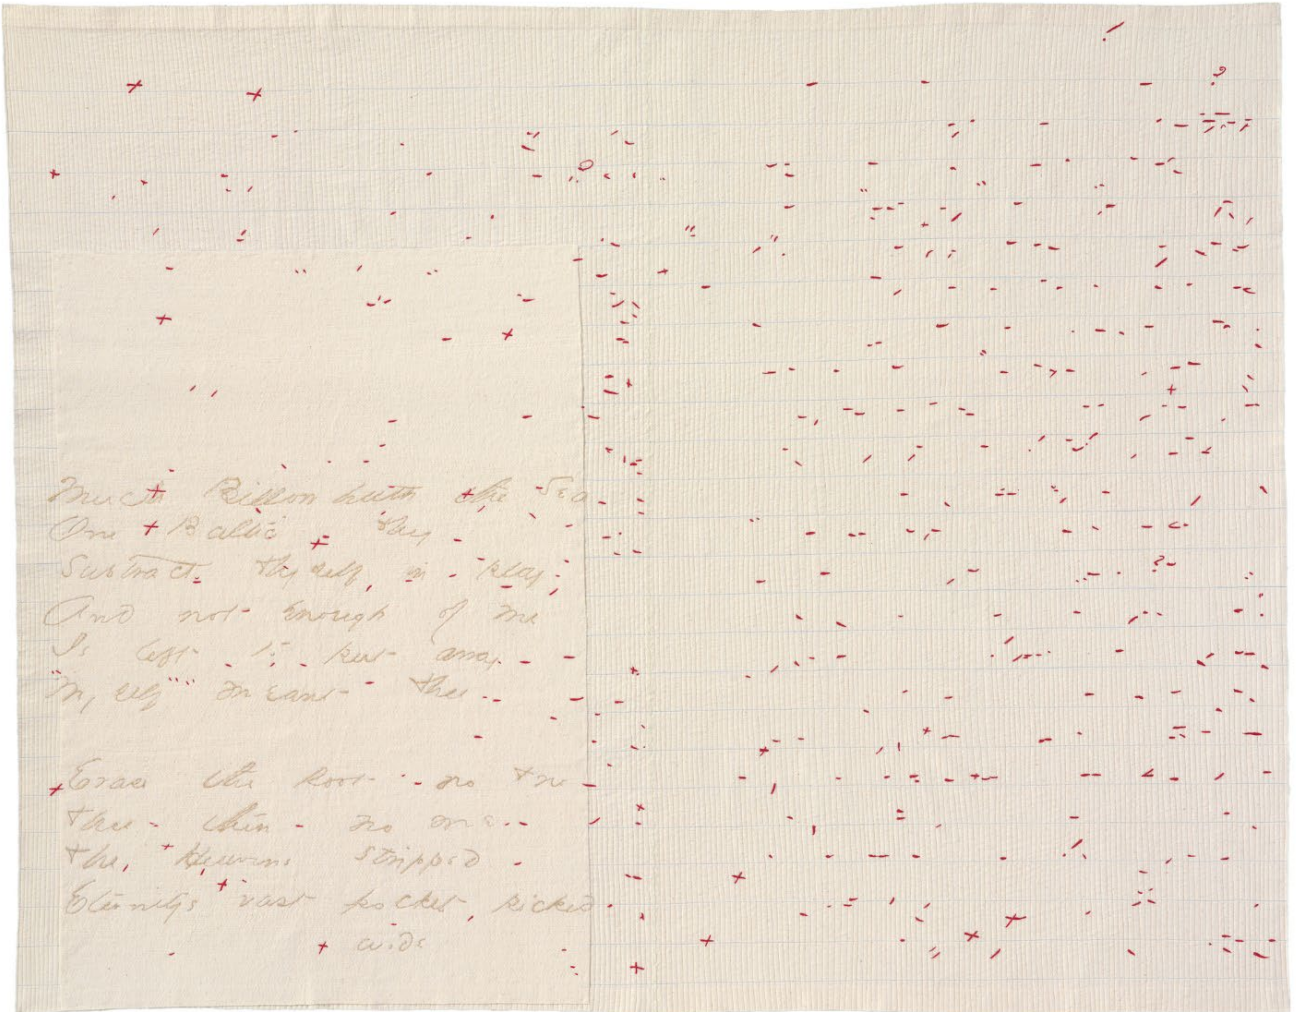 Much Billow hath the Sea
One Baltic - They -
Subtract Thyself, in play,
And not enough of me
Is left - to put away -
"Myself" meant Thee -

Erase the Root - no Tree -
Thee - then - no me -
The Heavens stripped -
Eternity's vast pocket, picked -
wide